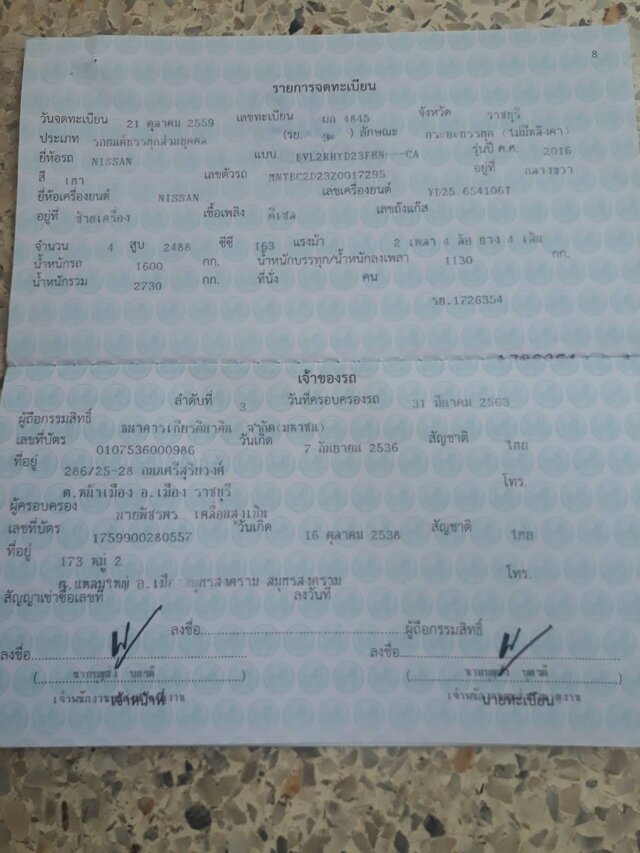 8
รายการจดทะเบียน
วันจดทะเบียน 21 ตุลาคม 2559 เลขทะเบียน ผก 4845 จังหวัด ราชบุรี
ประเภท รถยนต์บรรทุกส่วนบุคคล (รย. 3 ) ลักษณะ กระบะบรรทุก (ไม่มีหลังคา)
ยี่ห้อรถ NISSAN แบบ EVL2RHYD23FHN---CA รุ่นปี ค.ศ. 2016
สี เทา เลขตัวรถ MNTBC2D23Z0017295 อยู่ที่ กลางขวา
ยี่ห้อเครื่องยนต์ NISSAN เลขเครื่องยนต์ YD25 654106T
อยู่ที่ ซ้ายเครื่อง เชื้อเพลิง ดีเซล เลขถังแก๊ส
จำนวน 4 สูบ 2488 ซีซี 163 แรงม้า 2 เพลา 4 ล้อ ยาง 4 เส้น
น้ำหนักรถ 1600 กก. น้ำหนักบรรทุก/น้ำหนักลงเพลา 1130 กก.
น้ำหนักรวม 2730 กก. ที่นั่ง คน
รย.1726354
เจ้าของรถ
ลำดับที่ 3 วันที่ครอบครองรถ 31 มีนาคม 2563
ผู้ถือกรรมสิทธิ์ ธนาคารเกียรตินาคิน จำกัด(มหาชน)
เลขที่บัตร 0107536000986 วันเกิด 7 กันยายน 2536 สัญชาติ ไทย
ที่อยู่ 286/25-28 ถนนศรีสุริยวงศ์ โทร.
ต.หน้าเมือง อ.เมือง ราชบุรี
ผู้ครอบครอง นายพัชรพร เคลื่อนสูงเนิน
เลขที่บัตร 1759900280557 วันเกิด 16 ตุลาคม 2538 สัญชาติ ไทย
ที่อยู่ 173 หมู่ 2 โทร.
ต.แหลมใหญ่ อ.เมืองสมุทรสงคราม สมุทรสงคราม
สัญญาเช่าซื้อเลขที่ ลงวันที่
ลงชื่อ ผู้ถือกรรมสิทธิ์
ลงชื่อ ลงชื่อ
เจ้าหน้าที่ นายทะเบียน